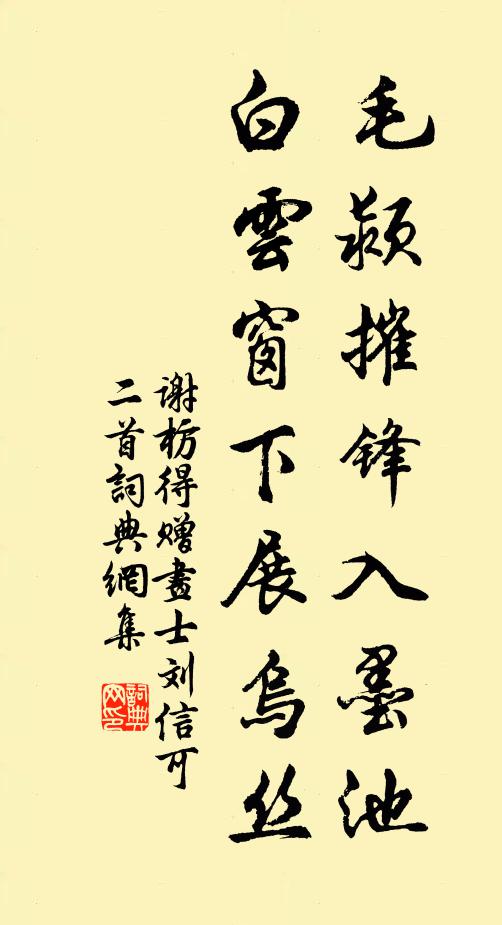 毛颖摧锋入墨池
白雲窗下展烏丝
谢枋得赠畫士刘信可
二首詞典網集
詞典
网印